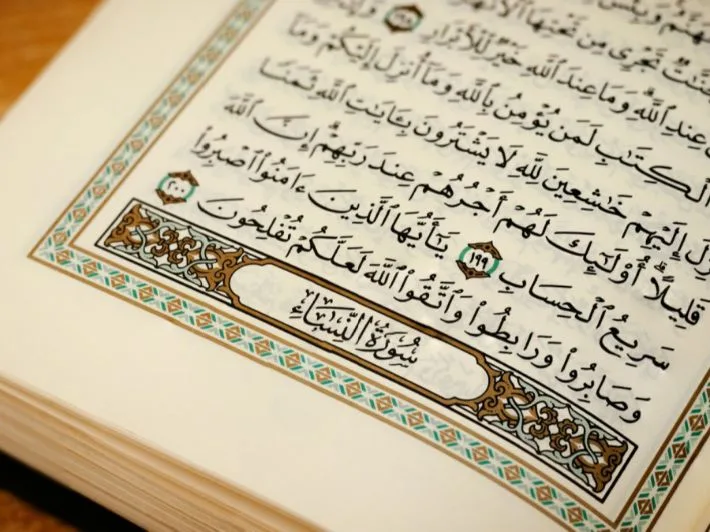 وَبِئْسَ
تَجْرِى مِن تَحْتِهَا ٱلْأَنْهَٰرُ
عِندِ ٱللَّهِ ۗ وَمَا عِندَ ٱللَّهِ خَيْرٌ لِّلْأَبْرَارِ ١٩٨
ٱلْكِتَٰبِ لَمَن يُؤْمِنُ بِٱللَّهِ وَمَآ أُنزِلَ إِلَيْكُمْ وَمَآ
إِلَيْهِمْ خَٰشِعِينَ لِلَّهِ لَا يَشْتَرُونَ بِـَٔايَٰتِ ٱللَّهِ ثَمَنًا
قَلِيلًا ۗ أُو۟لَٰٓئِكَ لَهُمْ أَجْرُهُمْ عِندَ رَبِّهِمْ ۗ إِنَّ ٱللَّهَ
سَرِيعُ ٱلْحِسَابِ ١٩٩ يَٰٓأَيُّهَا ٱلَّذِينَ ءَامَنُوا۟ ٱصْبِرُوا۟
وَصَابِرُوا۟ وَرَابِطُوا۟ وَٱتَّقُوا۟ ٱللَّهَ لَعَلَّكُمْ تُفْلِحُونَ ٢٠٠
سُورَةُ النِّسَاءِ